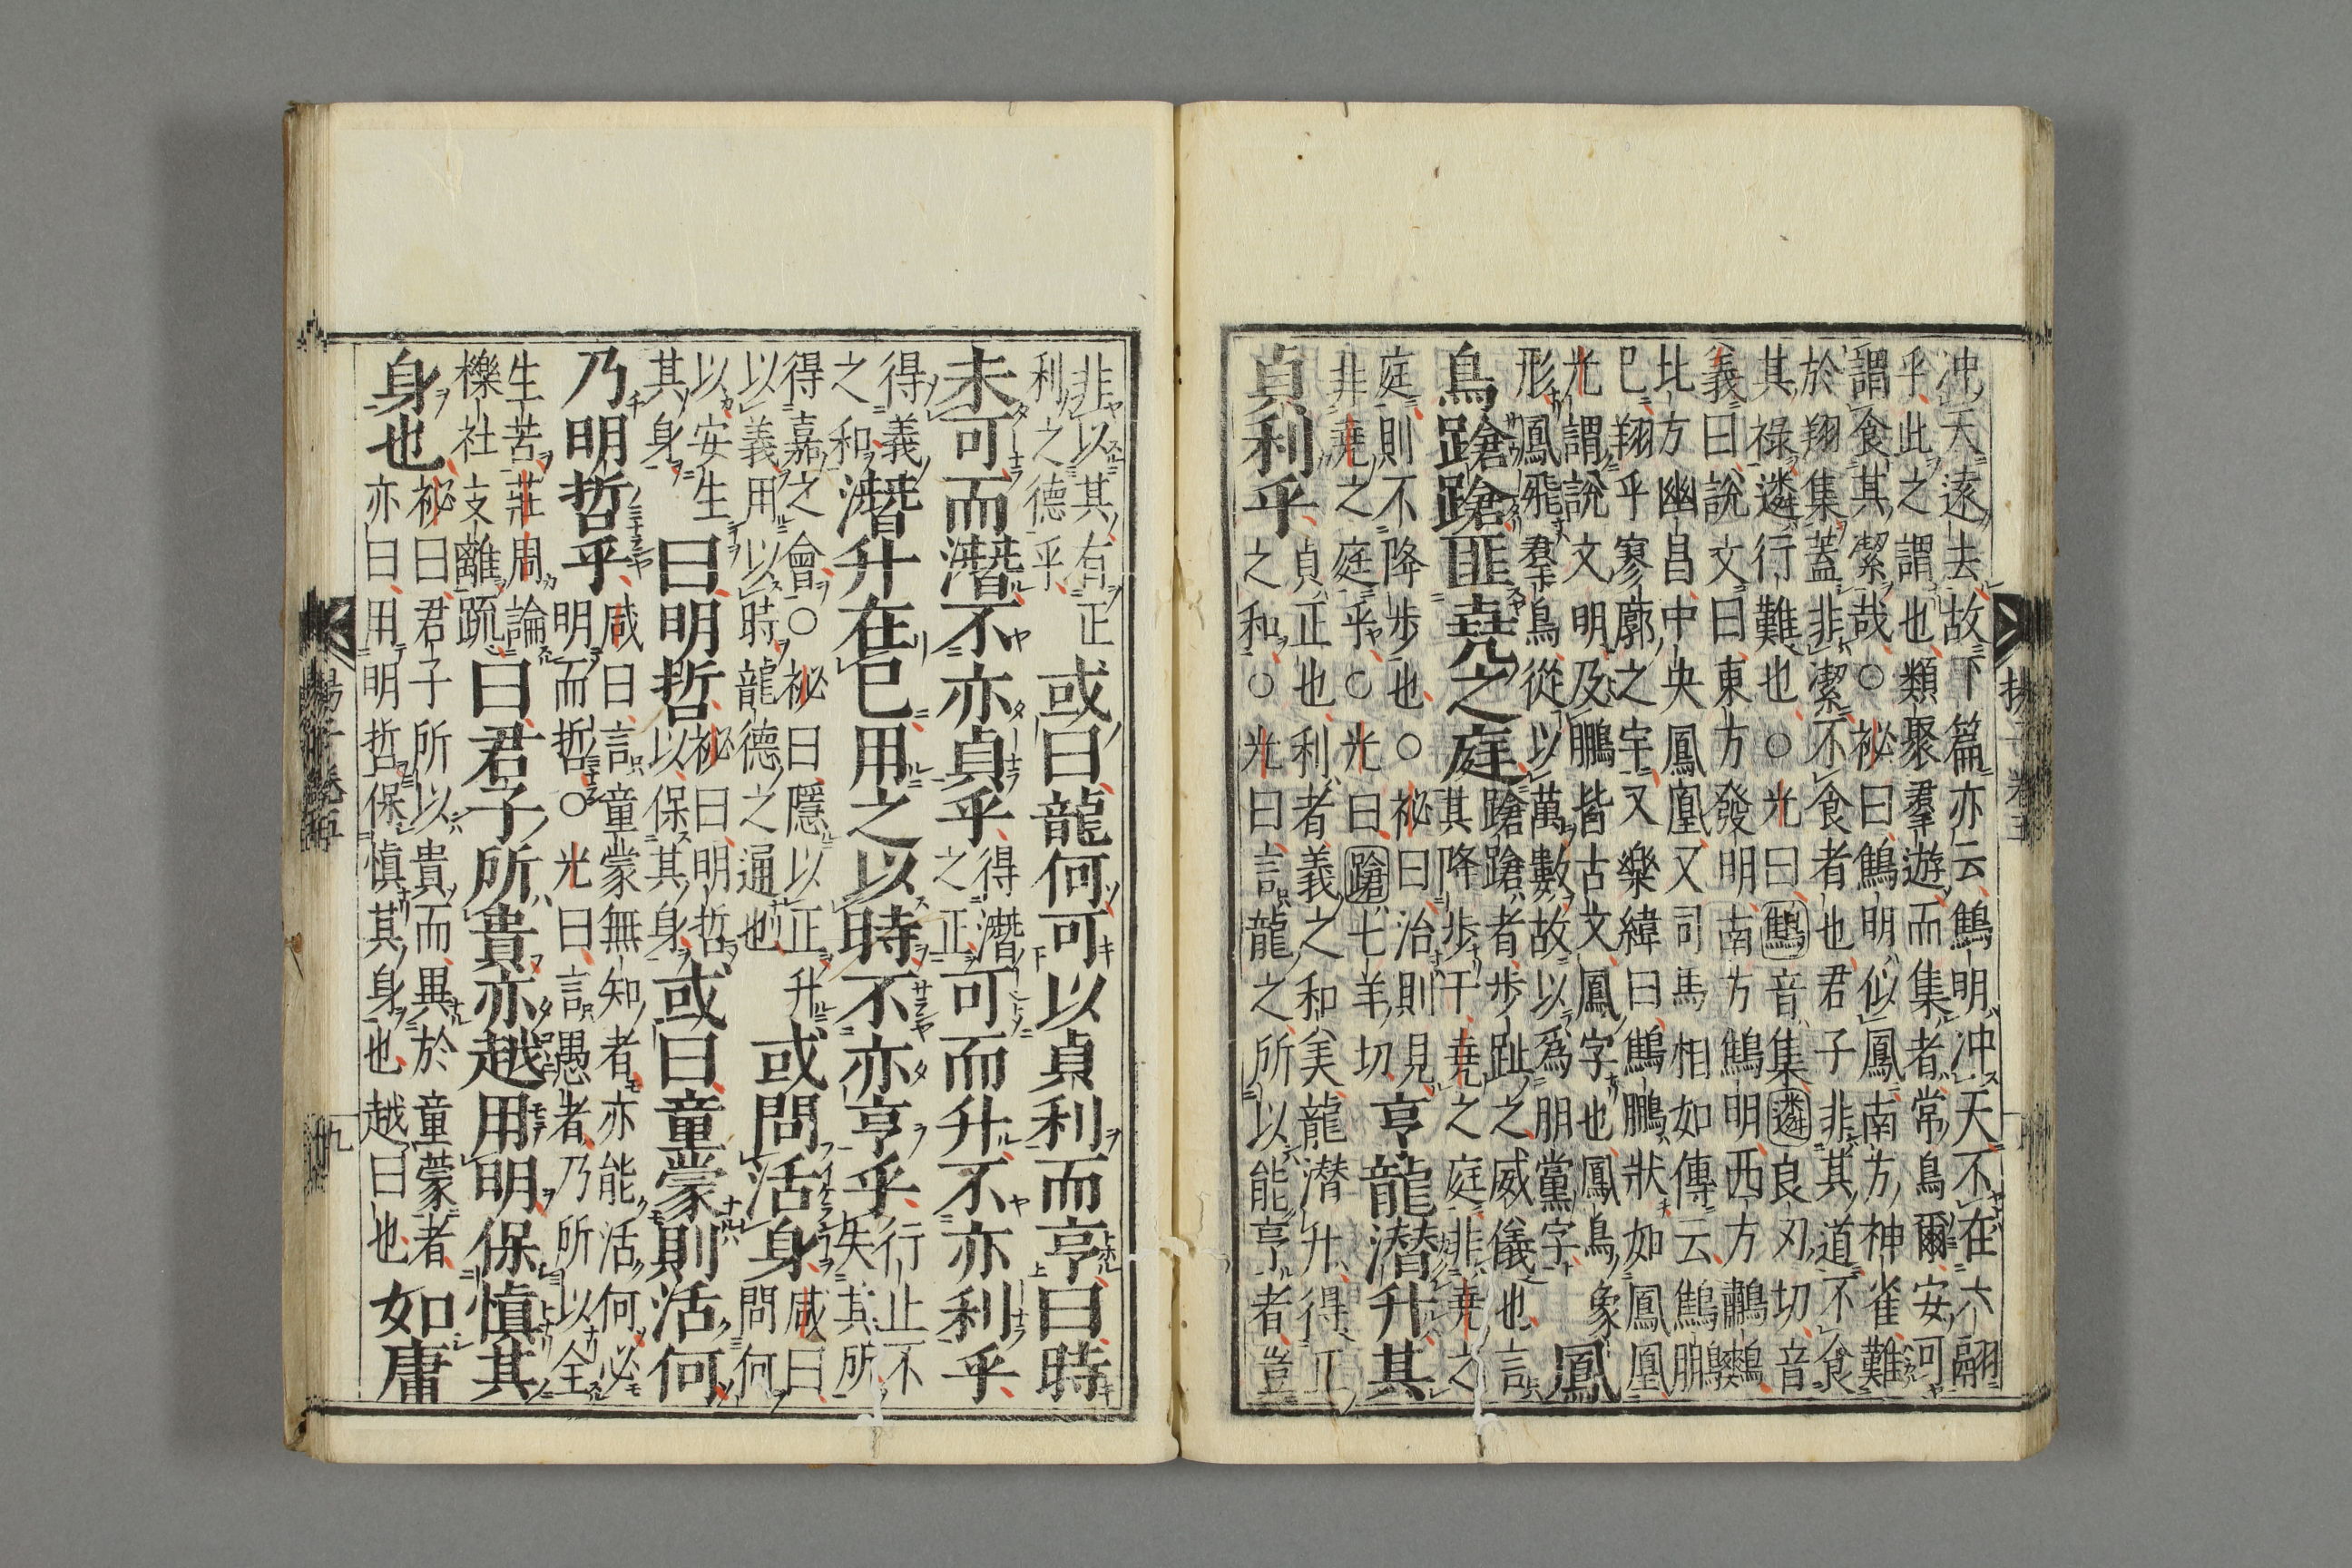 冲天遠去故下篇亦云鷦明冲天不在六翮
乎此之謂也類聚羣遊而集者常鳥爾安可
謂食其潔哉○祕曰鷦明似鳳南方神雀難
於翔集蓋非潔不食者也君子非其道不食
其祿遴行難也○光曰鷦音集遴良刃切音
義曰說文曰東方發明南方鷦明西方鷫鷞
北方幽昌中央鳳凰又司馬相如傳云鷦鵬
已翔乎寥廓之宇又樂緯曰鷦鵬狀如鳳凰
光謂說文明及鵬皆古文鳳字也鳳鳥象
形鳳飛羣鳥從以萬數故以爲朋黨字
鳳
鳥蹌蹌匪堯之庭
蹌蹌者步趾之威儀也言
其降步于堯之庭非堯之
庭則不降步也○祕曰治則見
非堯之庭乎○光曰蹌七羊切
亨龍潛升其
貞利乎
貞正也利者義之和美龍潛升得正
之和○光曰言龍之所以能亨者豈
非以其有正
利之德乎
或曰龍何可以貞利而亨曰時
未可而潛不亦貞乎
得潛
之正
可而升不亦利乎
得義
之和
潛升在已用之以時不亦亨乎
行止不
失其所
得嘉之會○祕曰隱以正升
以義用以時龍德之通也
或問活身
咸曰
問何
以安生
其身
曰明哲
祕曰明哲
以保其身
或曰童蒙則活何
乃明哲乎
咸曰言童蒙無知者亦能活何必
明而哲○光曰言愚者乃所以全
生苦莊周論
櫟社支離踈
曰君子所貴亦越用明保慎其
身也
祕曰君子所以貴而異於童蒙者
亦曰用明哲保慎其身也越曰也
如庸